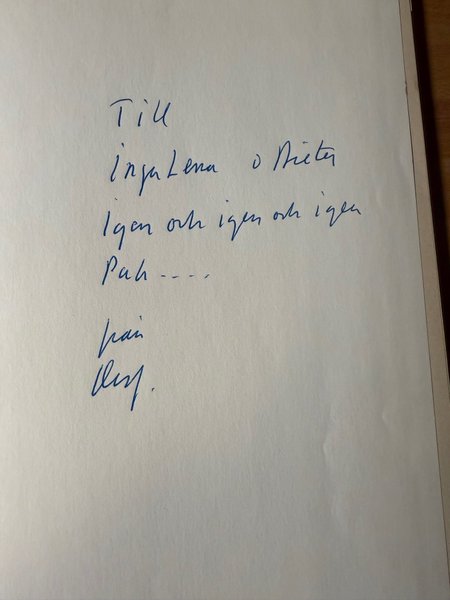 Till
Inga Lena o Dieter
Igen och igen och igen
Puh....
från